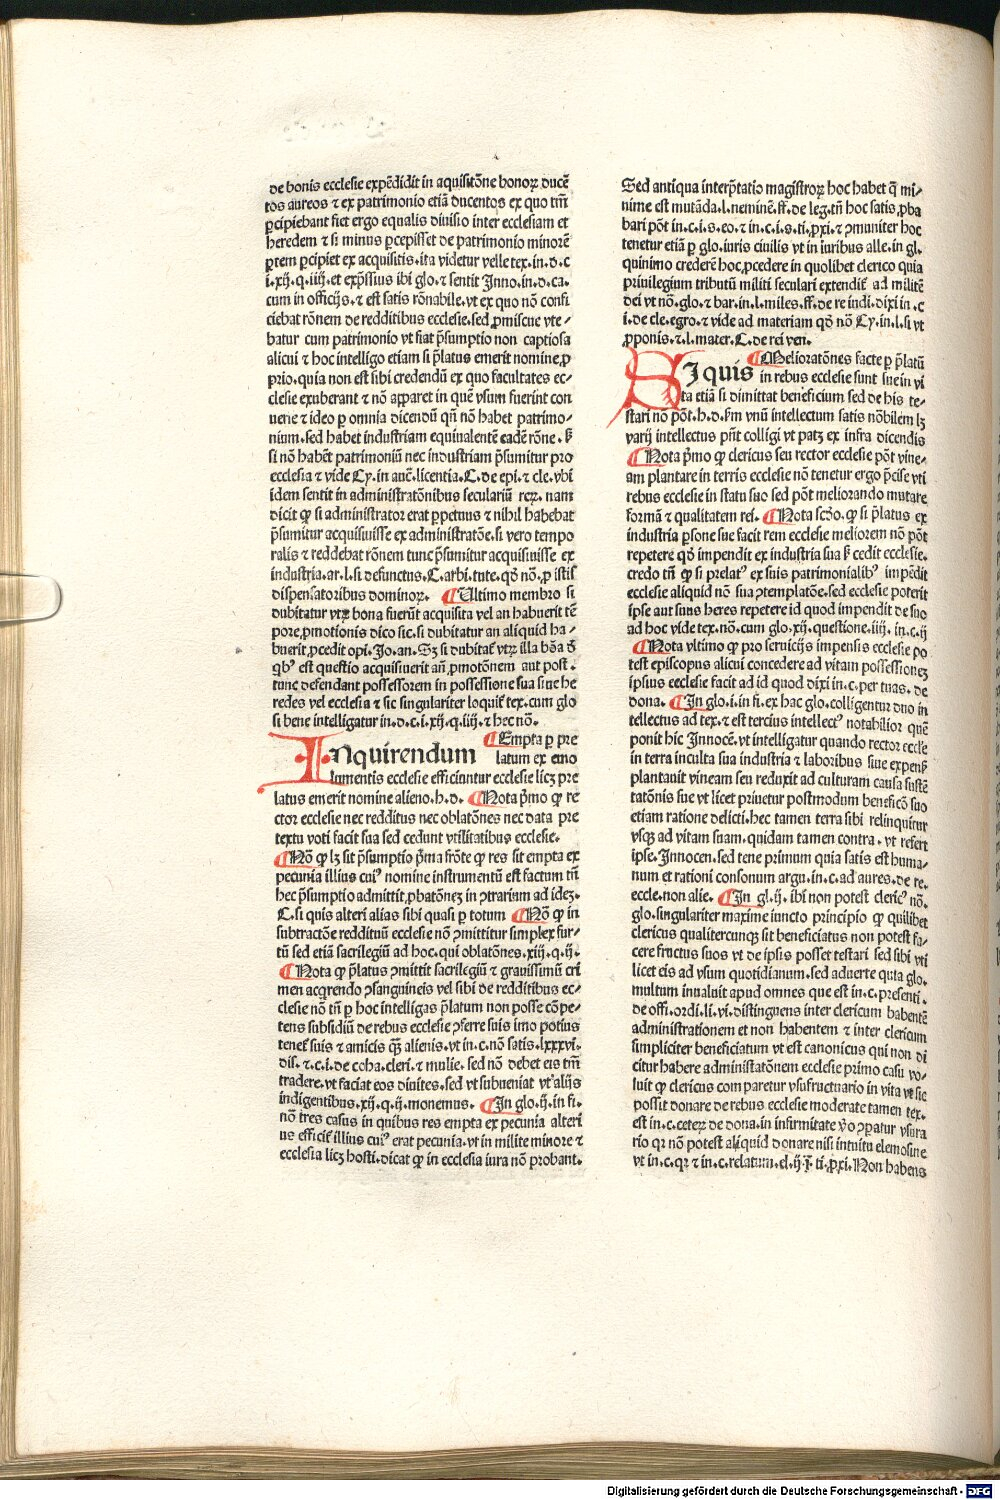 de bonis ecclesie expēdidit in aquisitōne honoꝝ ducē
tos aureos ⁊ ex patrimonio etiā ducentos ex quo tm̄
ꝑcipiebant fiet ergo equalis diuisio inter ecclesiam et
heredem ⁊ si minus ꝑcepisset de patrimonio minorē
ꝑtem ꝑcipiet ex acquisitis.ita videtur velle tex.in.d.c
i.xij.q.iiij.et exp̄ssius ibi glo.⁊ sentit Inno.in.d.ca.
cum in officijs.⁊ est satis rōnabile.vt ex quo nōn confi
ciebat rōnem de redditibus ecclesie.sed ꝓmiscue vte⸗
batur cum patrimonio vt fiat p̄sumptio non captiosa
alicui ⁊ hoc intelligo etiam si p̄latus emerit nomine ꝓ
prio.quia non est sibi credendū ex quo facultates ec⸗
clesie exuberant ⁊ nō apparet in quē vsum fuerint con
uerse ⁊ ideo ꝑ omnia dicendū qn̄ nō habet patrimo⸗
nium.sed habet industriam equiualentē eadē rōne.ẜ
si nō habēt patrimoniū nec industriam p̄sumitur pro
ecclesia ⁊ vide Cy.in auē.licentia.C.de epi.⁊ cle.vbi
idem sentit in administratōnibus seculariū reꝝ. nam
dicit ꝙ si administrator erat ꝑpetuus ⁊ nihil habebat
p̄sumitur acquisiuisse ex administratōe.si vero tempo
ralis ⁊ reddebat rōnem tunc p̄sumitur acquisiuisse ex
industria.ar.l.si defunctus.C.arbi.tute.qd̄ nō.ꝓ istis
dispensatoribus dominoꝝ. ¶Ultimo membro si
dubitatur vtꝝ bona fuerūt acquisita vel an habuerit tē
pore ꝓmotionis dico sic.si dubitatur an aliquid ha⸗
buerit ꝓcedit opi.Jo.an.Sꝫ si dubitat̄ vtꝝ illa bōa d̄
qbꝰ est questio acquisiuerit an̄ ꝓmotōnem aut post⸗
tunc defendant possessorem in possessione sua siue he
redes vel ecclesia ⁊ sic singulariter loquit̄ tex.cum glo
si bene intelligatur in.d.c.i.xij.q.iiij.⁊ hec nō.
INquirendum ¶Empta ꝑ pre
latum ex emo
lumentis ecclesie efficiuntur ecclesie licꝫ pre
latus emerit nomine alieno.h.d. ¶Nota p̄mo ꝙ re
ctor ecclesie nec redditus nec oblatōnes nec data pre
textu voti facit sua sed cedunt vtilitatibus ecclesie.
¶Nō ꝙ lꝫ sit p̄sumptio p̄ma frōte ꝙ res sit empta ex
pecunia illius cuiꝰ nomine instrumentū est factum tn̄
hec p̄sumptio admittit ꝓbatōneꝫ in ꝯtrarium ad ideꝫ.
C.si quis alteri alias sibi quasi ꝑ totum ¶Nō ꝙ in
subtractōe reddituū ecclesie nō ꝯmittitur simplex fur⸗
tū sed etiā sacrilegiū ad hoc.qui oblatōnes.xiij.q.ij.
¶Nota ꝙ p̄latus ꝯmittit sacrilegiū ⁊ grauissimū cri
men acqrendo ꝯsanguineis vel sibi de redditibus ec⸗
clesie nō tn̄ ꝑ hoc intelligas p̄latum non posse cōpe⸗
tens subsidiū de rebus ecclesie ꝯferre suis imo potius
tenet̄ suis ⁊ amicis q̄ꝫ alienis.vt in.c.nō satis.lxxxvi.
dis.⁊.c.i.de coha.cleri.⁊ mulie.sed nō debet eis tm̄
tradere.vt faciat eos diuites.sed vt subueniat vt alijs
indigentibus.xij.q.ij.monemus. ¶In glo.ij.in fi.
nō tres casus in quibus res empta ex pecunia alteri
us efficit̄ illius cuiꝰ erat pecunia.vt in milite minore ⁊
ecclesia licꝫ hosti.dicat ꝙ in ecclesia iura nō probant.
Sed antiqua interp̄tatio magistroꝝ hoc habet q̄ mi⸗
nime est mutāda.l.neminē.ff.de leg.tn̄ hoc satis ꝓba
bari pōt in.c.i s.eo.⁊ in.c.i s.ti.ꝓxi.⁊ ꝯmuniter hoc
tenetur etiā ꝑ glo.iuris ciuilis vt in iuribus alle.in gl.
quinimo crederē hoc ꝓcedere in quolibet clerico quia
priuilegium tributū militi seculari extendit̄ ad militē
dei vt nō.glo.⁊ bar.in.l.miles.ff.de re iudi.dixi in.c
i.de cle.egro.⁊ vide ad materiam qd̄ nō Cy.in.l.si vt
ꝓponis.⁊.l.mater.C.de rei ven.
SIquis ¶Melioratōnes facte ꝑ p̄latū
in rebus ecclesie sunt sue in vi
ta etiā si dimittat beneficium sed de his te⸗
stari nō pōt.h.d.ẜm vnū intellectum satis nōbilem lꝫ
varij intellectus pn̄t colligi vt patꝫ ex infra dicendis
¶Nota p̄mo ꝙ clericus seu rector ecclesie pōt vine⸗
am plantare in terris ecclesie nō tenetur ergo p̄cise vti
rebus ecclesie in statu suo sed pōt meliorando mutare
formā ⁊ qualitatem rei. ¶Nota scd̄o.ꝙ si p̄latus ex
industria ꝑsone sue facit rem ecclesie meliorem nō pōt
repetere qd̄ impendit ex industria sua ẜ cedit ecclesie.
credo tn̄ ꝙ si prelatꝰ ex suis patrimonialibꝰ impēdit
ecclesie aliquid nō sua ꝯtemplatōe.sed ecclesie poterit
ipse aut suus heres repetere id quod impendit de suo
ad hoc vide tex.nō.cum glo.xij.questione.iiij. in.c.ij
¶Nota vltimo ꝙ pro seruicijs impensis ecclesie po
test episcopus alicui concedere ad vitam possessioneꝫ
ipsius ecclesie facit ad id quod dixi in.c.per tuas. de
dona. ¶In glo.i.in fi.ex hac glo.colliguntur duo in
tellectus ad tex.⁊ est tercius intellectꝰ notabilior quē
ponit hic Innocē.vt intelligatur quando rector eccle
in terra inculta sua industria ⁊ laboribus siue expens̄
plantauit vineam seu reduxit ad culturam causa sustē
tatōnis sue vt licet priuetur postmodum beneficō suo
etiam ratione delicti.hec tamen terra sibi relinquitur
vsqꝫ ad vitam suam.quidam tamen contra. vt refert
ipse.Innocen.sed tene primum quia satis est huma⸗
num et rationi consonum argu.in.c.ad aures.de re.
eccle.non alie. ¶In gl.ij. ibi non potest clericꝰ nō.
glo.singulariter maxime iuncto principio ꝙ quilibet
clericus qualitercunqꝫ sit beneficiatus non potest fa⸗
cere fructus suos vt de ipsis posset testari sed sibi vti
licet eis ad vsum quotidianum.sed aduerte quia glo.
multum inualuit apud omnes que est in.c.presenti.
de offi.ordi.li.vi.distinguens inter clericum habentē
administrationem et non habentem ⁊ inter clericum
simpliciter beneficiatum vt est canonicus qui non di
citur habere administatōnem ecclesie primo casu vo⸗
luit ꝙ clericus comparetur vsufructuario in vita vt sic
possit donare de rebus ecclesie moderate tamen tex.
est in.c.ceteꝝ de dona.in infirmitate v̄o ꝯpatur vsura
rio qr nō potest aliquid donare nisi intuitu elemosine
vt in.c.qr ⁊ in.c.relatum.el.ij.ī ti.ꝓxi.Non habens
Digitalisierung gefördert durch die Deutsche Forschungsgemeinschaft - DFG